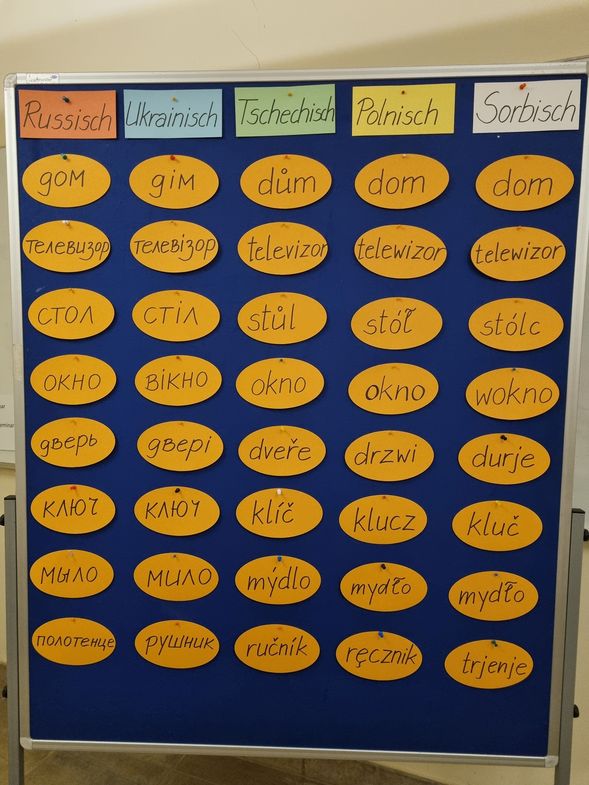 Russisch Ukrainisch Tschechisch Polnisch Sorbisch
дом дім dům dom dom
телевизор телевізор televizor telewizor telewizor
стол стіл stůl stół stólc
окно вікно okno okno wokno
дверь двері dveře drzwi durje
ключ ключ klíč klucz kluč
мыло мило mýdlo mydło mydło
полотенце рушник ručník ręcznik trjenje